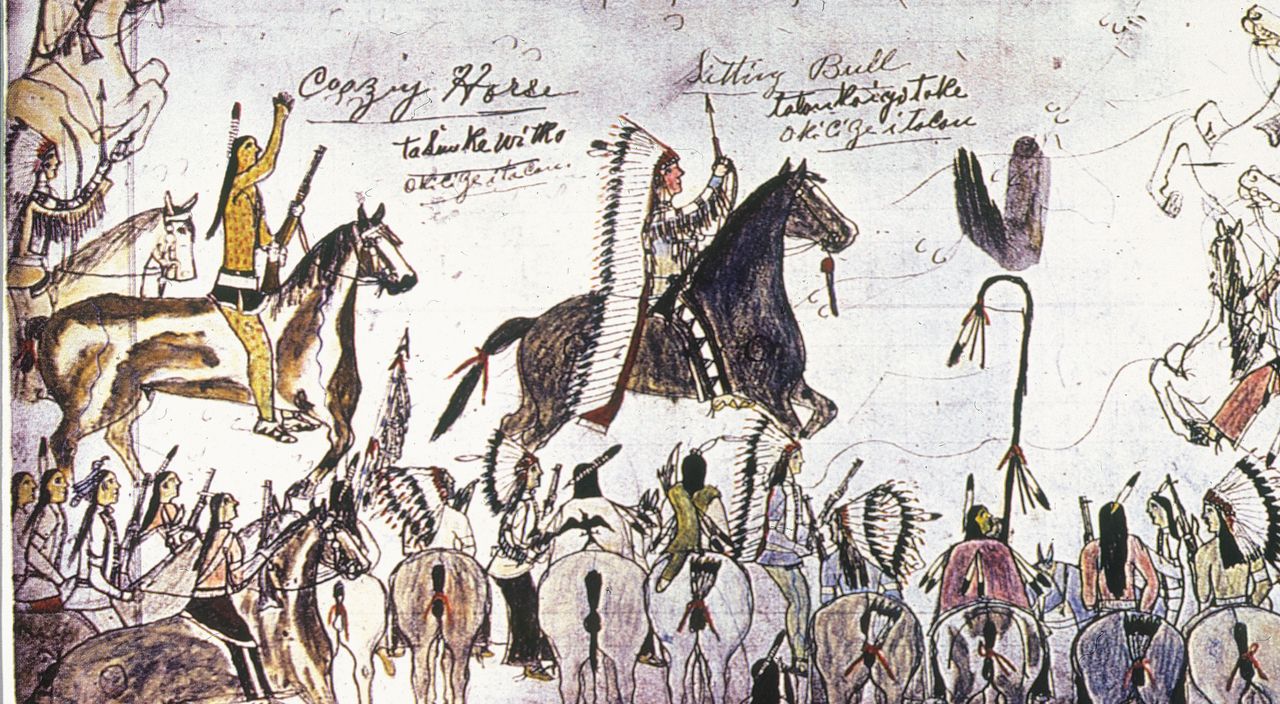 Crazy Horse
tasuke witko
okicize itacan.
Sitting Bull
tatankaiyotake
okicize itacan